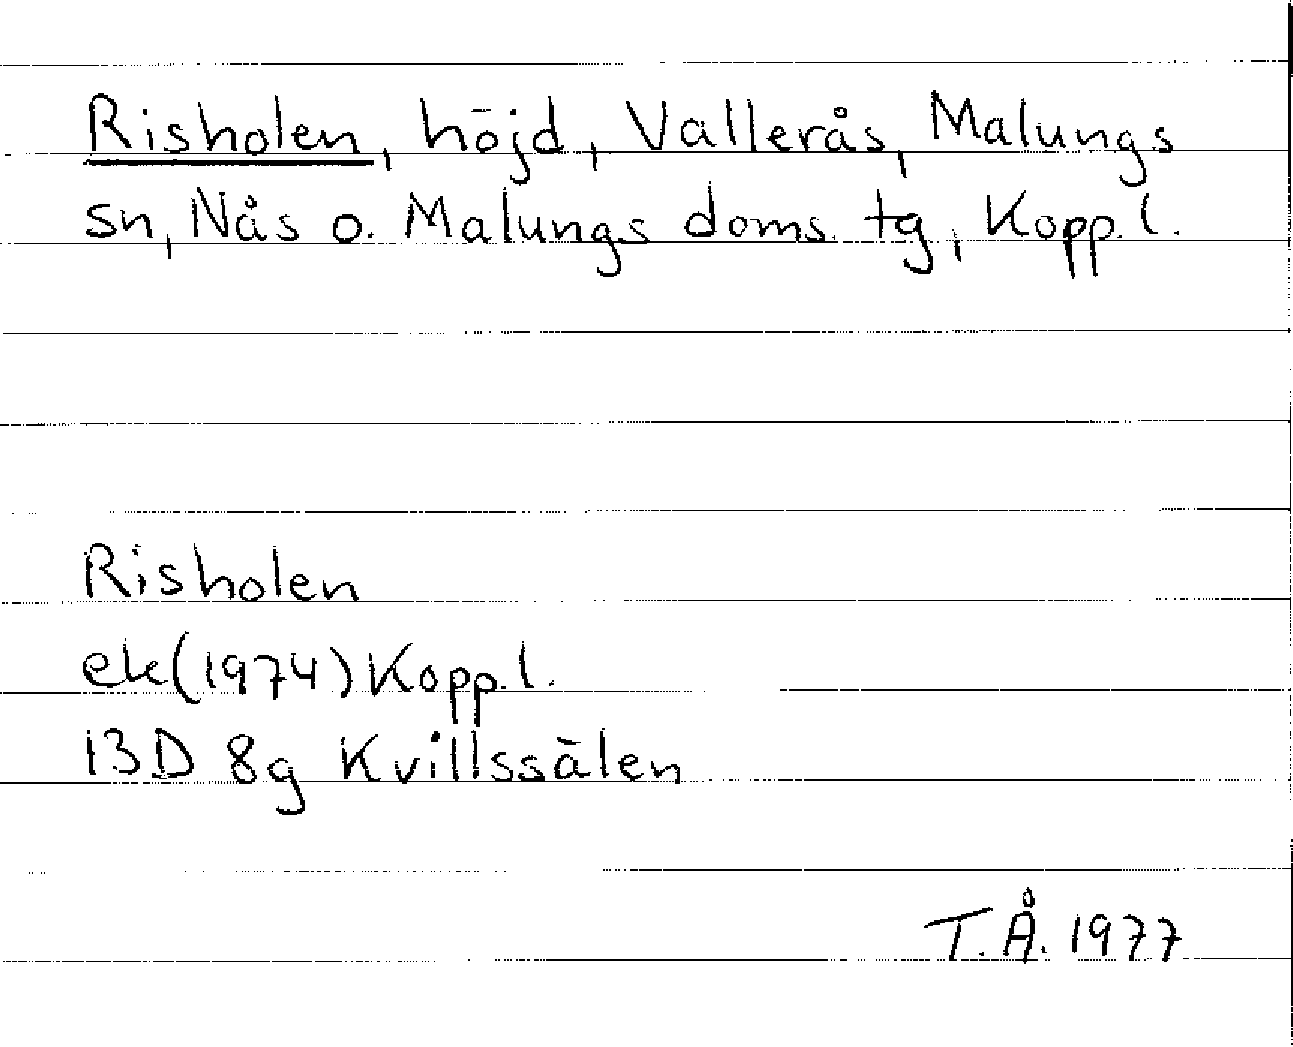 Risholen, höjd, Vallerås, Malungs
sn, Nås o. Malungs doms. tg, Kopp. l.
Risholen
ek(1974) Kopp. l.
13D 8g Kvillssälen
T.Å. 1977